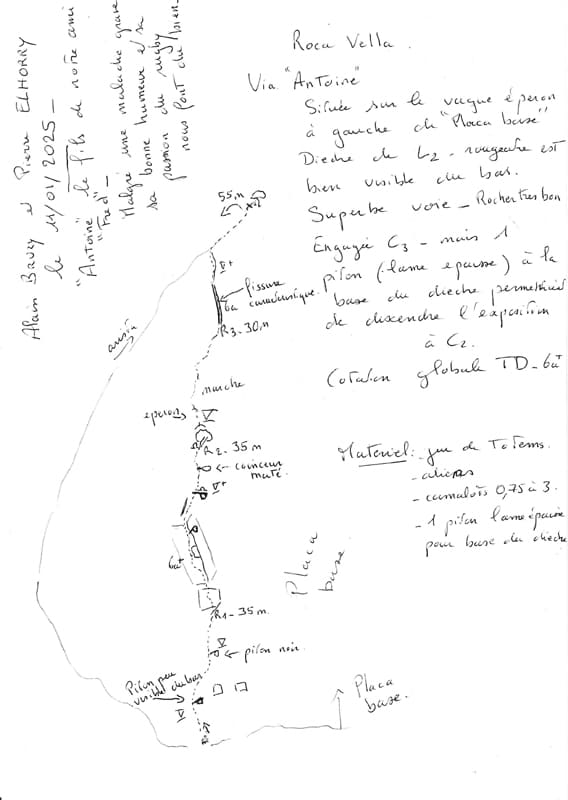 Roca Vella.
Via "Antoine"
Située sur le vague éperon
à gauche de "Placa base"
Dièdre de L2 - rougeatre est
bien visible du bas.
Superbe voie - Rocher très bon
Engagée C3 - mais 1
piton (lame épaisse) à la
base du dièdre permettrait
de descendre l'exposition
à C2.
Cotation globale TD - 6a+
Matériel: jeu de Totems.
- aliens
- camalots 0,75 à 3.
- 1 piton lame épaisse
pour base du dièdre
Alain Bavey et Pierre ELHORRY
le 11/01/2025 -
"Antoine" le fils de notre ami
"Fred" -
Malgré une maladie grave
sa bonne humeur et sa
passion du rugby
nous font du bien.
55m
V+
fissure
6a caractéristique.
R3 - 30m
marche
éperon
VI
R2 - 35m
coinceur
maté.
V+
6a+
R1 - 35m.
VI
piton noir.
Piton peu
visible du bas
VI
Placa
base
Placa
base.